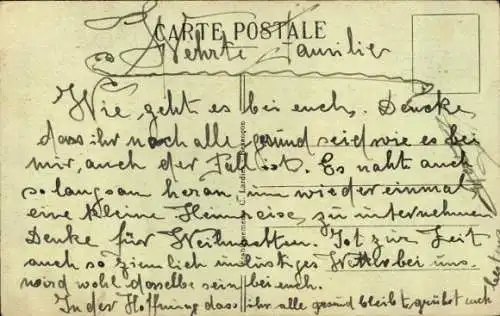 CARTE POSTALE
Wehrte Familie
Wie geht es bei euch. Dencke
dass ihr noch alle gesund seid wie es bei
mir, auch der Fall ist. Es naht auch
so langsam heran, um wieder einmal
eine kleine Heimreise, zu unternehmen
Denke für Weihnachten. Ist zur Zeit
auch so ziemlich unlustiges Wetter bei uns.
wird wohl dasselbe sein bei euch.
In der Hoffnung dass ihr alle gesund bleibt, grüsst euch